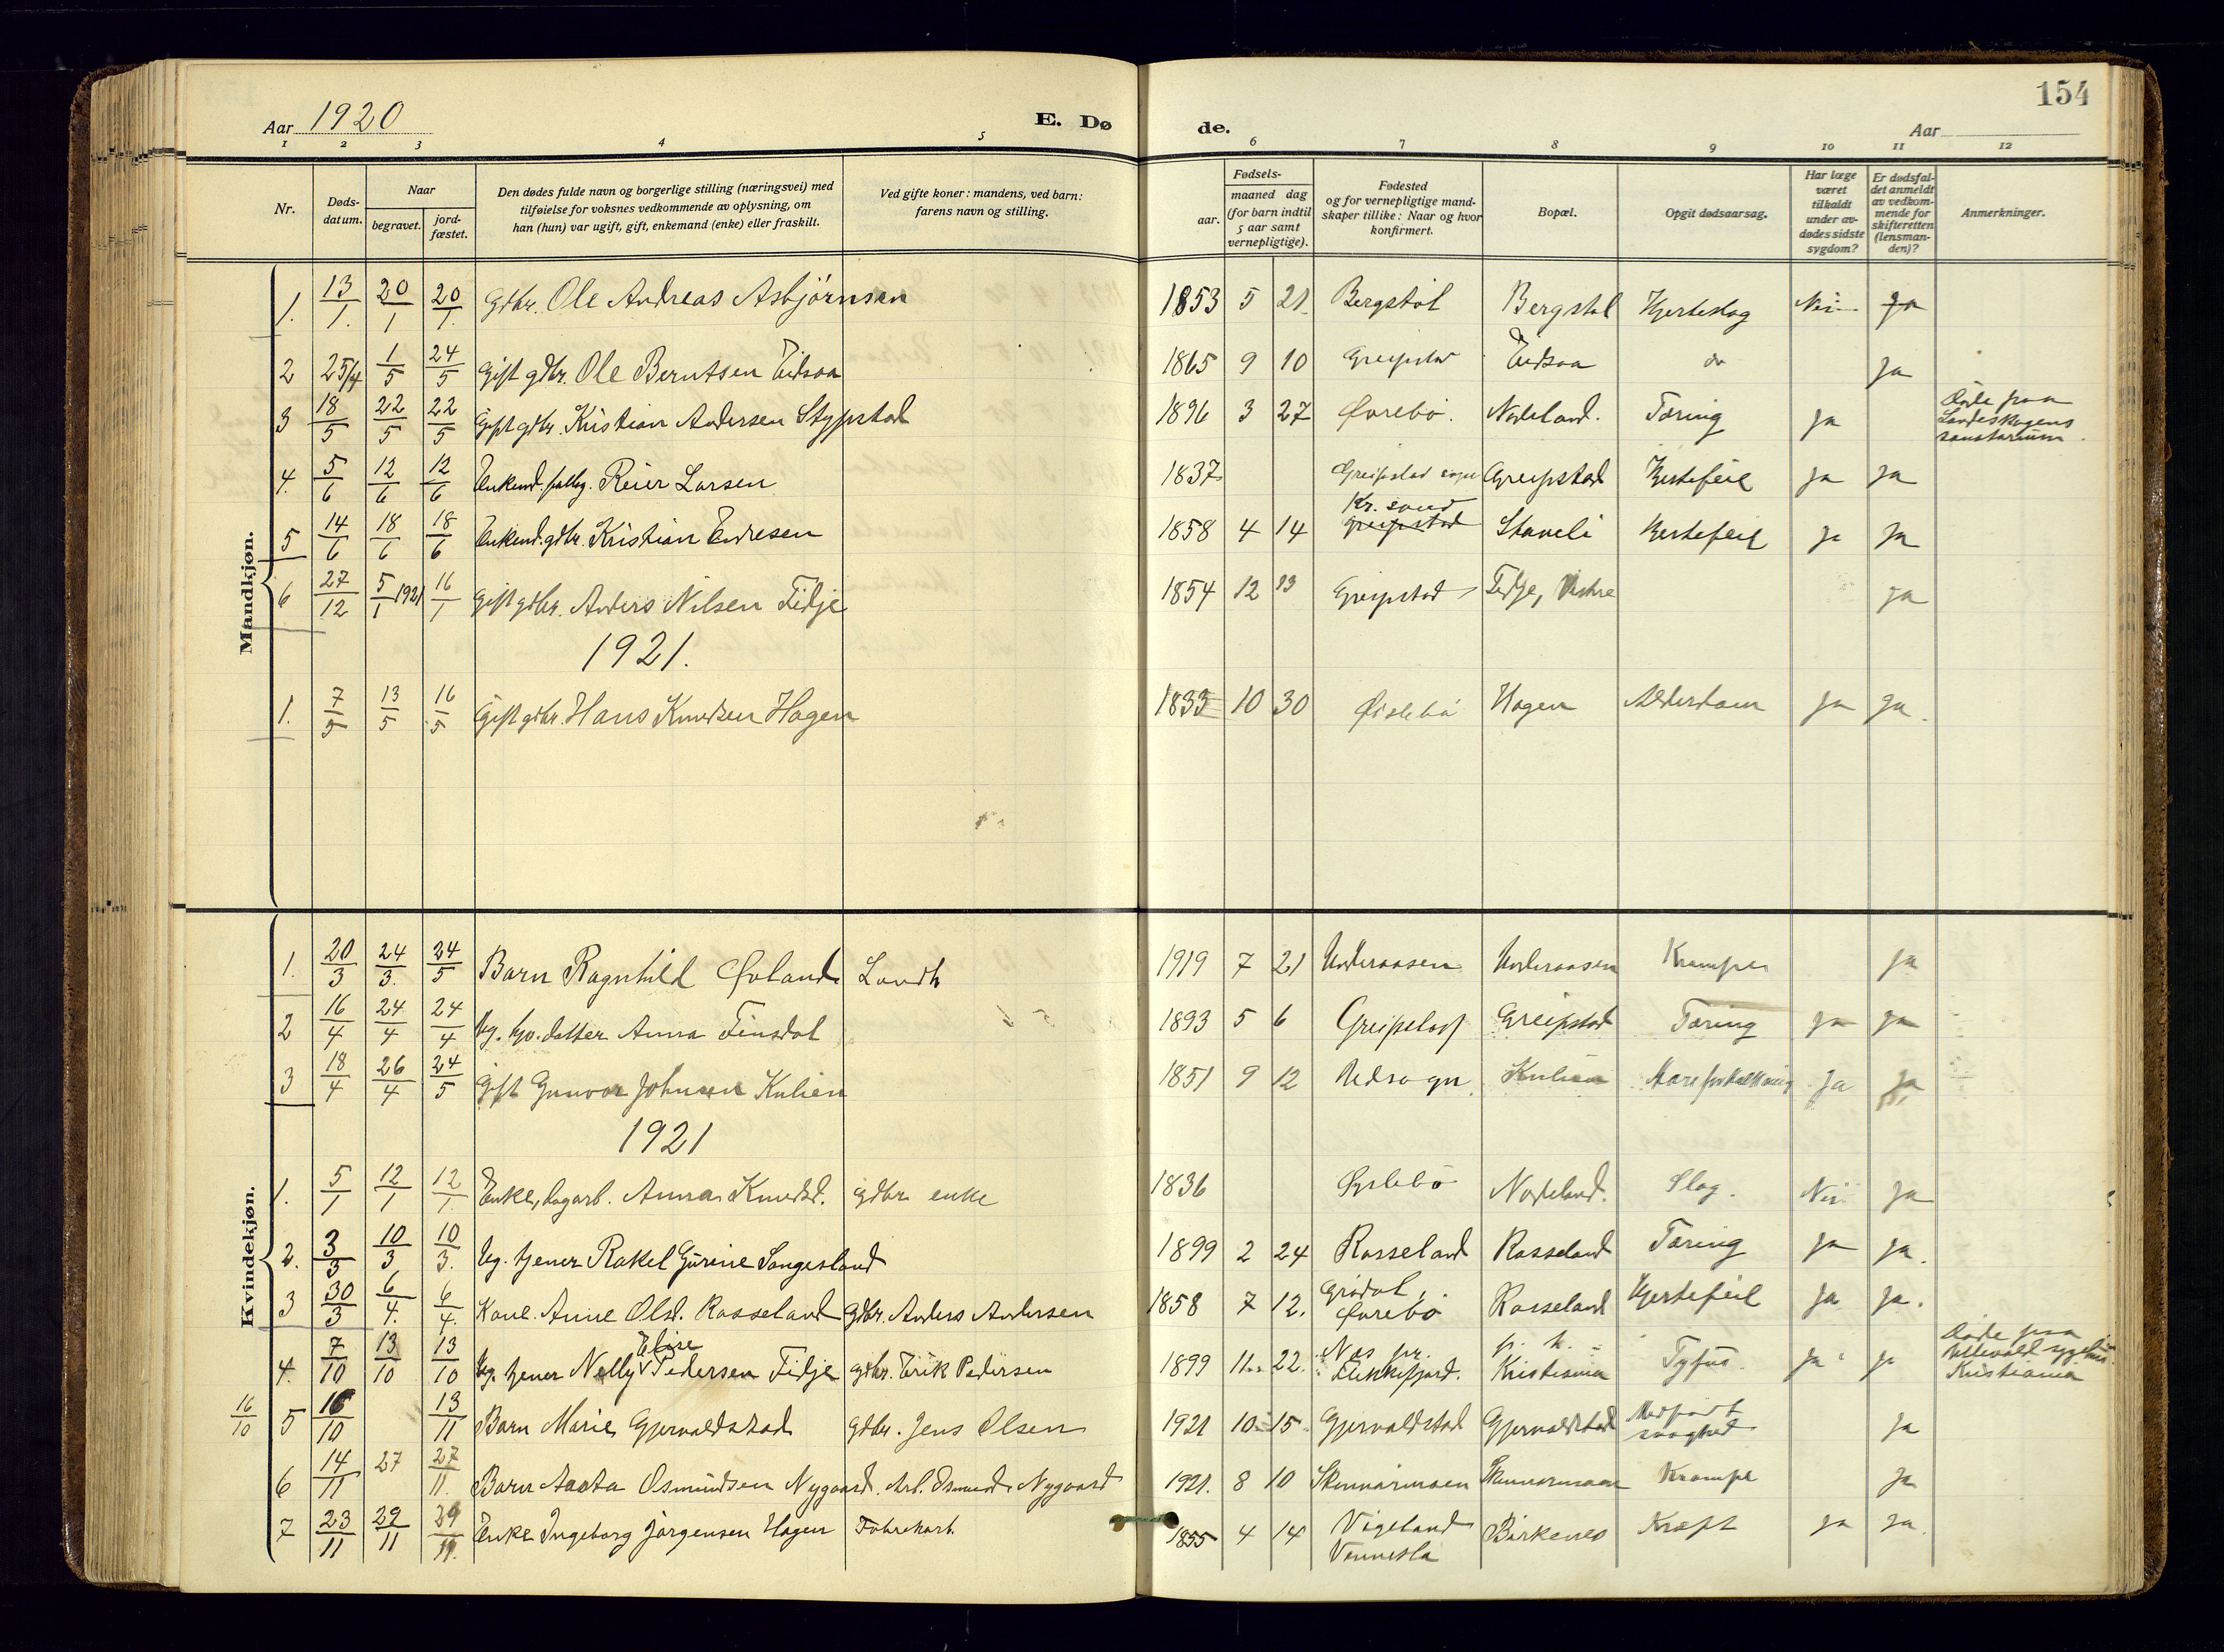 154
Aar 1920
E. Dø de.
Aar
1 2 3 4 5 6 7 8 9 10 11 12
Nr.
Døds-
datum.
Naar
begravet.
jord-
fæstet.
Den dødes fulde navn og borgerlige stilling (næringsvei) med
tilføielse for voksnes vedkommende av oplysning, om
han (hun) var ugift, gift, enkemand (enke) eller fraskilt.
Ved gifte koner: mandens, ved barn:
farens navn og stilling.
Fødsels-
aar.
maaned dag
(for barn indtil
5 aar samt
vernepligtige).
Fødested
og for vernepligtige mand-
skaper tillike: Naar og hvor
konfirmert.
Bopæl.
Opgit dødsaarsag.
Har læge
været
tilkaldt
under av-
dødes sidste
sygdom?
Er dødsfal-
det anmeldt
av vedkom-
mende for
skifteretten
(lensman-
den)?
Anmerkninger.
Mandkjøn.
1. 13/1. 20/1 20/1. Gdbr. Ole Andreas Asbjørnsen 1853 5 21. Bergstøl Bergstøl Hjerteslag Nei Ja
2 25/4 1/5 24/5 Gift gdbr. Ole Berntsen Eidsaa 1865 9 10 Greipstad Eidsaa do Ja
3 18/5 22/5 22/5 Gift gdbr. Kristian Andersen Stypstad 1896 3 27 Øvrebø. Nodeland. Tæring Ja Døde paa
Landeskogens
sanatorium.
4. 5/6 12/6 12/6 Enkem. Reier Larsen 1837 Greipstad sogn Greipstad Hjertefeil Ja Ja
5 14/6 18/6 18/6 Enkem. gdbr. Kristian Endresen 1858 4 14 Kr. sand
Greipstad Stoveli Hjertefeil Ja Ja
6 27/12 5/1 1921 16/1 Gift gdbr. Anders Nilsen Fidje 1854 12 13 Greipstad Fidje, Vestre Ja
1921.
1. 7/5 13/5 16/5 Gift gdbr. Hans Knudsen Hagen 1833 10 30 Øislebø Hagen Alderdom Ja Ja.
Kvindekjøn.
1. 20/3 24/3. 24/5 Barn Ragnhild Øvland Landh 1919 7 21 Underaasen Underaasen Krampe Ja
2 16/4 24/4 24/4 Ug. datter Anna Finsdal 1893 5 6 Greipstad Greipstad Tæring Ja Ja
3 18/4 26/4 24/5 Gift Gunvor Johnsen Kulien 1851 9 12 Udsogn Kulien Aareforkalkning Ja Ja
1921
1. 5/1 12/1 12/1. Enke, dagarb. Anna Knudsd. Gdbr enke 1836 Øyslebø Nodeland. Slag. Nei Ja
2. 3/3 10/3 10/3. Ug. tjener Rakel Gurine Langesland 1899 2 24 Rosseland Rosseland Tæring Ja Ja.
3 30/3 6/4. 6/4. Kone. Anne Olsd. Rosseland Gdbr. Anders Andersen 1858 7 12. Grødal,
Øvrebø Rosseland Hjertefeil Ja Ja.
4. 7/10 13/10 13/10 Ug. tjener Nelly Elise Pedersen Fidje gdbr. Erik Pedersen 1899 11. 22. Nes pr.
Flekkefjord. p. t.
Kristiania Tyfus. Ja Ja Døde paa
Ullevold sygehus.
Kristiania
16/10 5 16/10 13/11 Barn Marie Gjervaldstad gdbr. Jens Olsen 1921 10 15 Gjervaldstad Gjervaldstad Medfødt
svaghed Ja
6 14/11 27 27/11. Barn Aasta Osmundsen Nygaard. Arb. Osmund Nygaard 1921. 8 10 Skinnarmoen Skinnarmoen Krampe Ja
7 23/11 29/11 29/11. Enke Ingeborg Jørgensen Hagen Fabrikarb. 1855 4 14 Vigeland
Vennesla Birkenes Kræft Ja Ja.